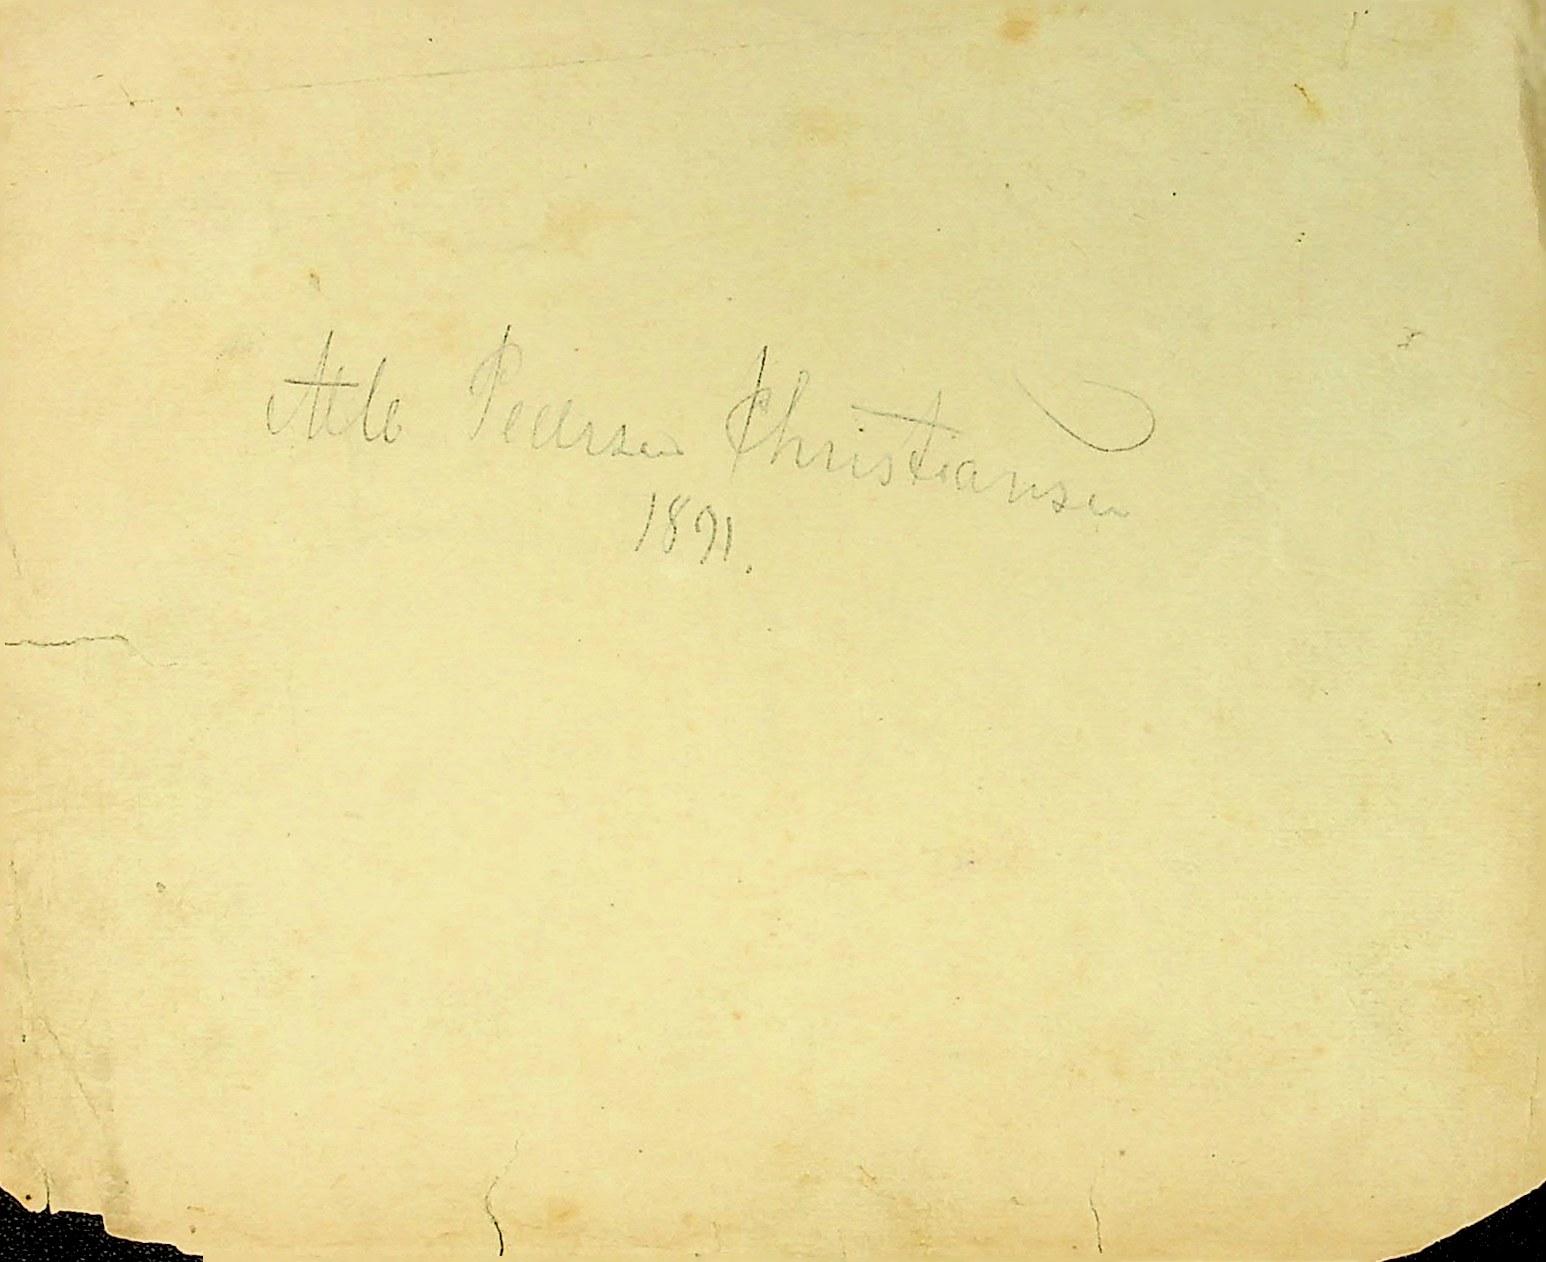 Atle Pedersen Christiansen
1891.